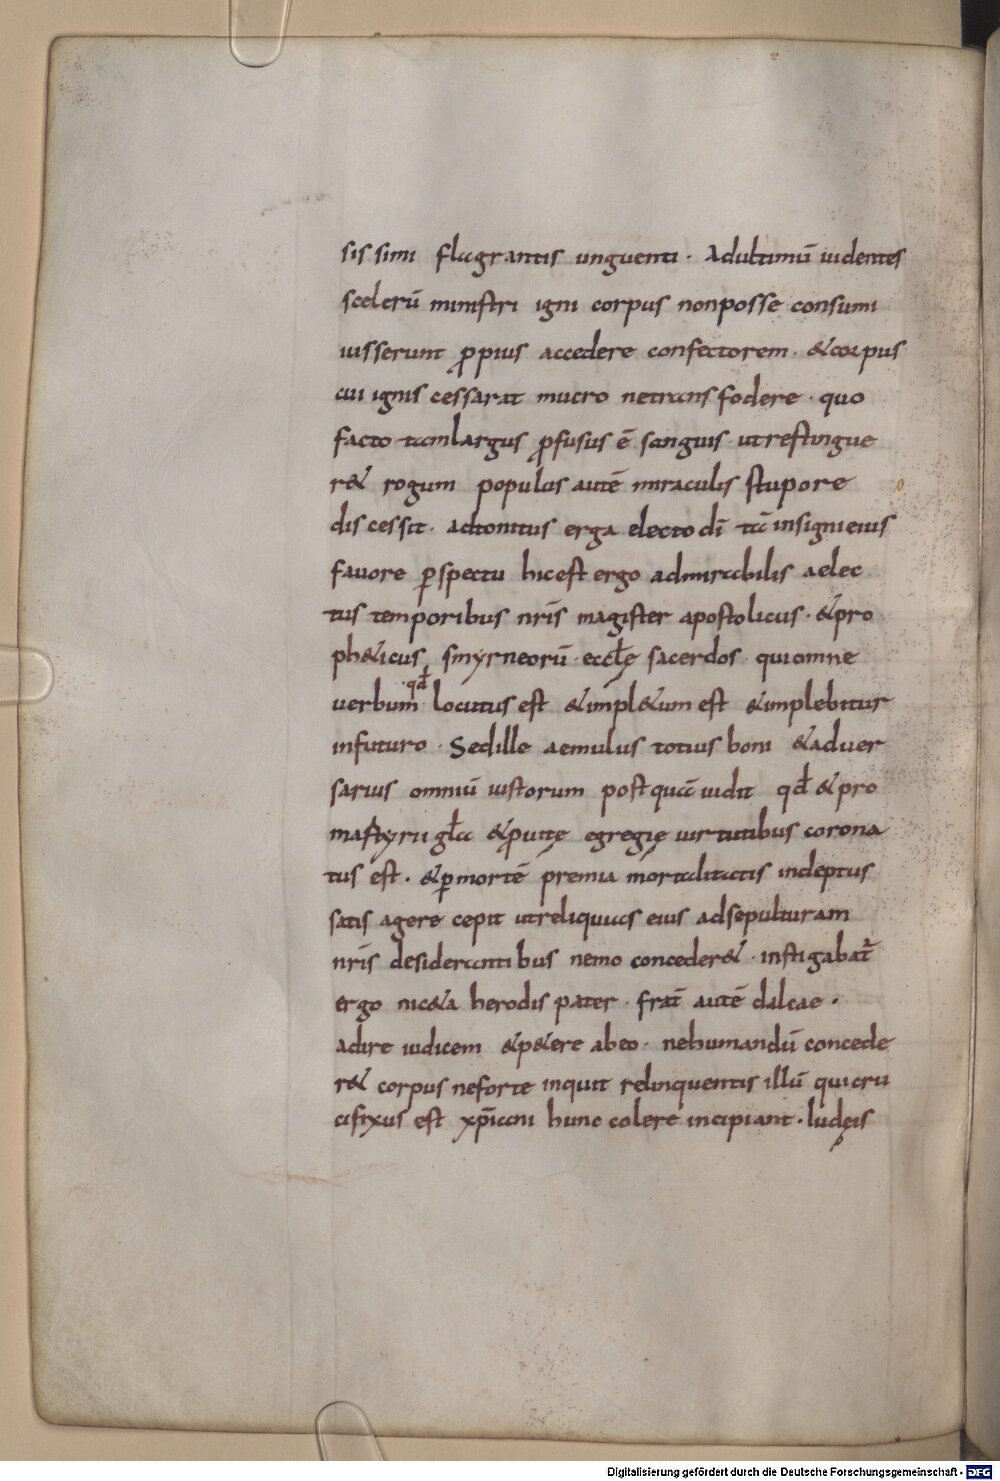 sissimi flagrantis unguenti · Adultimū uidentes
scelerū ministri igni corpus nonposse consumi
iusserunt ꝓpius accedere confectorem · &corpus
cui ignis cessarat mucro netransfodere · quo
facto tamlargus ꝓfusus ē sanguis utrestingue
r& rogum populus autē miraculis stupore
discessit · adtonitus erga electo dī tā insigni eius
fauore ꝑspectu hicest ergo admirabilis aelec
tus temporibus nr̄is magister apostolicus · &pro
ph&icus smyrneorū eccłę sacerdos quiomne
uerbum qđ locutus est &impl&um est &implebitur
infuturo · Sedille aemulus totius boni &aduer
sarius omniū iustorum postquā uidit qđ &pro
mastyrii gła &ꝓuitę egregię uirtutibus corona
tus est · &ꝑmortē premia mortalitatis indeptus
satis agere cepit utreliquias eius adsepulturam
nr̄is desiderantibus nemo conceder& · instigabat̄
ergo nic&a herodis pater · frat̄ autē dalcae ·
adire iudicem &p&ere abeo · nehumandū concede
r& corpus neforte inquit relinquentis illū quicru
cifixus est xp̄iani hunc colere incipiant · Iudęis
Digitalisierung gefördert durch die Deutsche Forschungsgemeinschaft - DFG